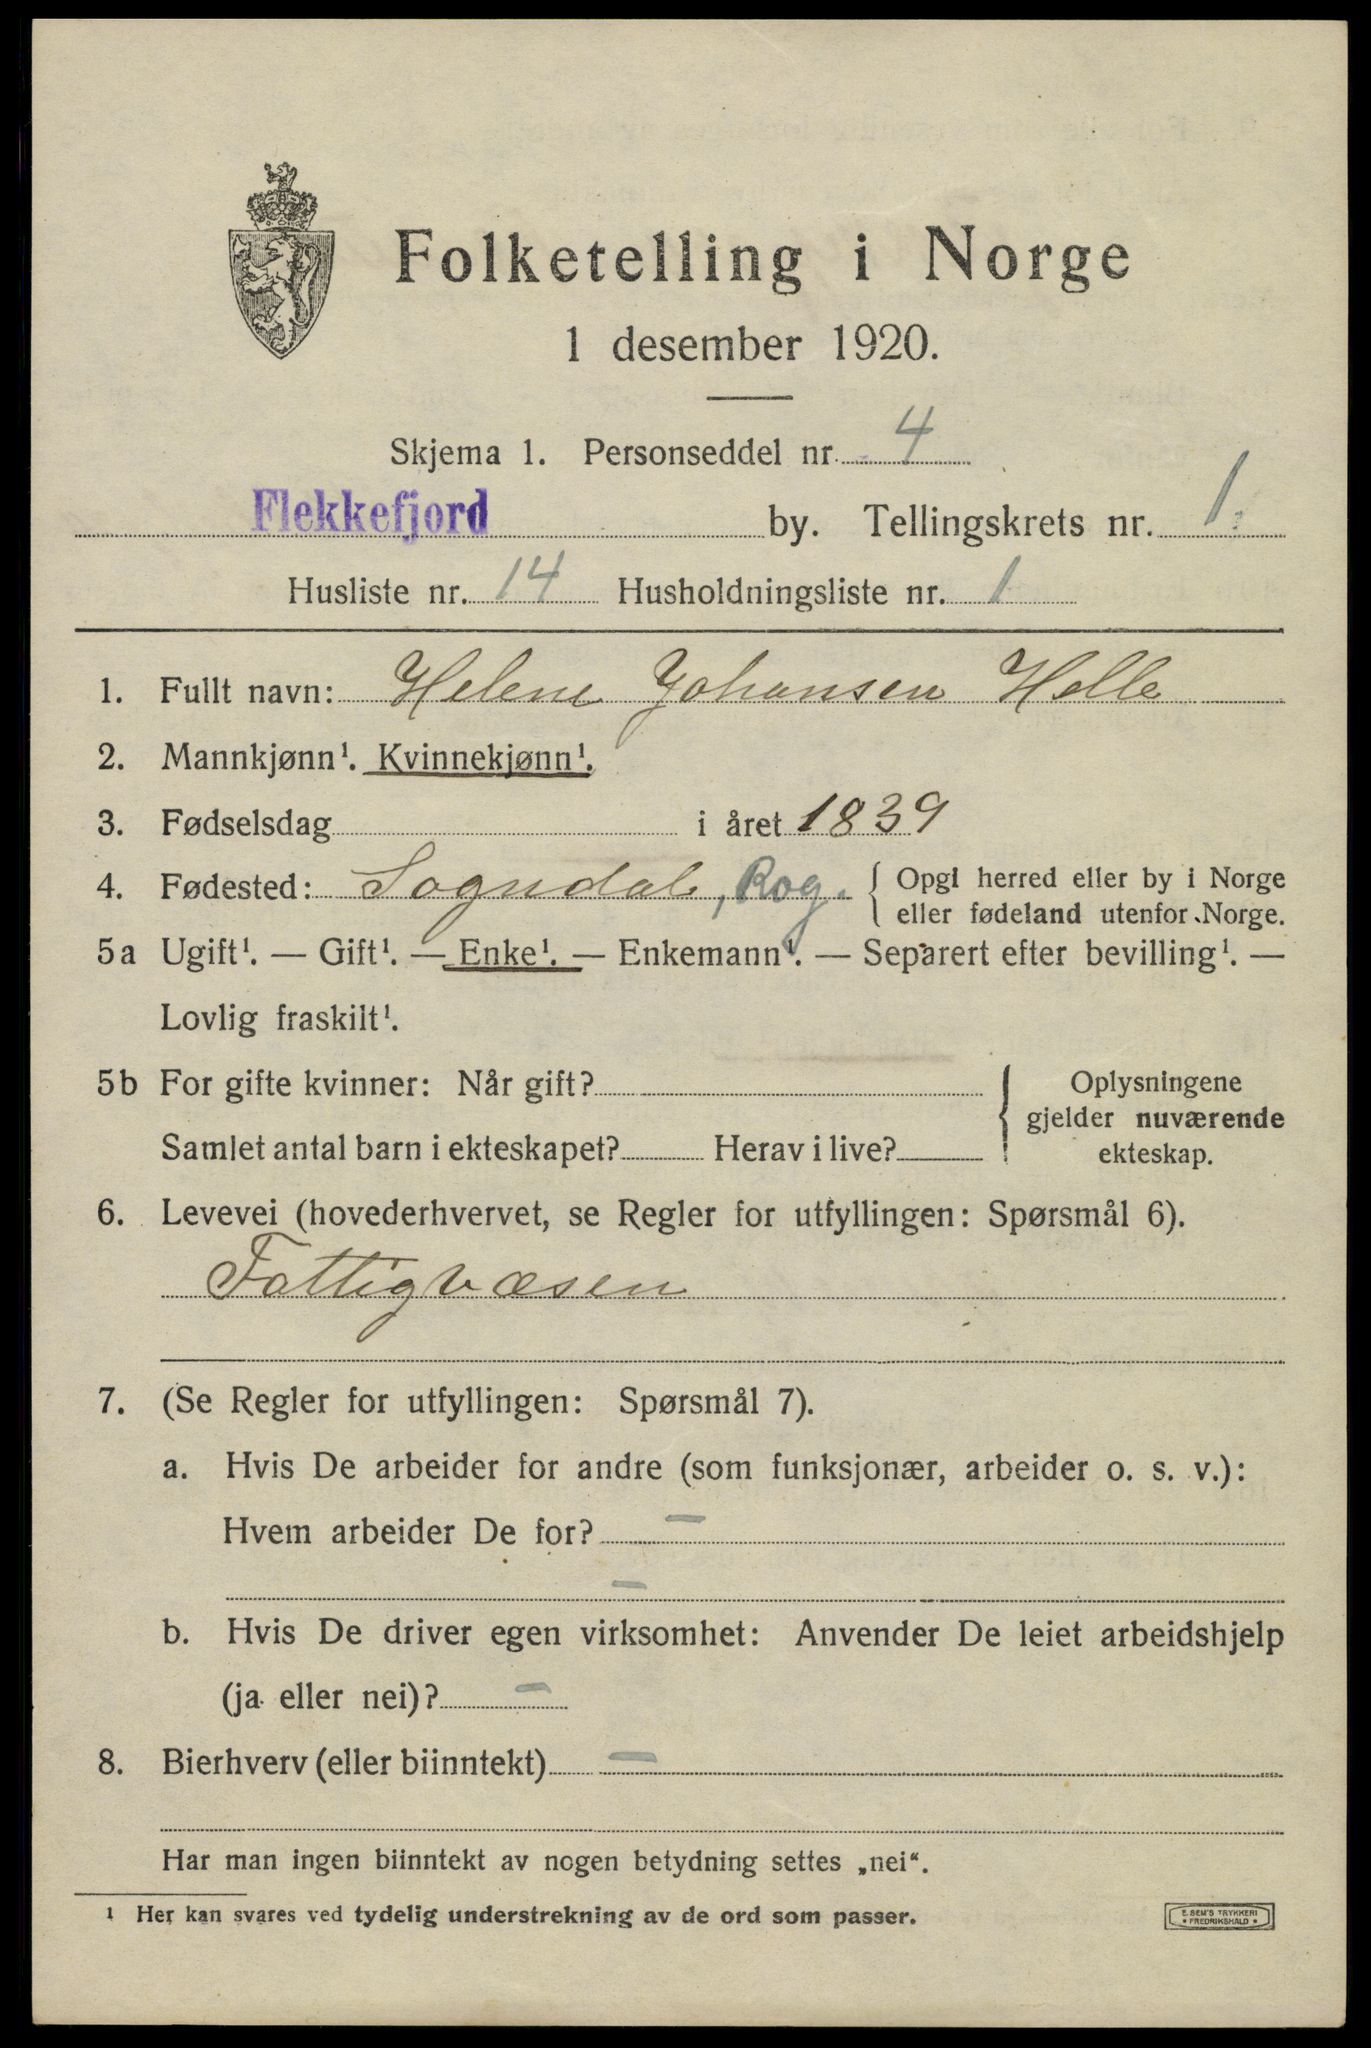 Folketelling i Norge
1 desember 1920.
Skjema 1. Personseddel nr. 4
Flekkefjord by. Tellingskrets nr. 1.
Husliste nr. 14 Husholdningsliste nr. 1
1. Fullt navn: Helene Johansen Helle
2. Mannkjønn¹. Kvinnekjønn¹.
3. Fødselsdag i året 1839
4. Fødested: Sogndal, Rog. { Opgi herred eller by i Norge
eller fødeland utenfor Norge.
5a Ugift¹. — Gift¹. — Enke¹. — Enkemann¹. — Separert efter bevilling¹. —
Lovlig fraskilt¹.
5b For gifte kvinner: Når gift? { Oplysningene
gjelder nuværende
Samlet antal barn i ekteskapet? Herav i live? ekteskap.
6. Levevei (hovederhvervet, se Regler for utfyllingen: Spørsmål 6).
Fattigvæsen
7. (Se Regler for utfyllingen: Spørsmål 7).
a. Hvis De arbeider for andre (som funksjonær, arbeider o. s. v.):
Hvem arbeider De for? —
—
b. Hvis De driver egen virksomhet: Anvender De leiet arbeidshjelp
(ja eller nei)? —
8. Bierhverv (eller biinntekt) —
Har man ingen biinntekt av nogen betydning settes „nei“.
¹ Her kan svares ved tydelig understrekning av de ord som passer.
E. SEM'S TRYKKERI
* FREDRIKSHALD *